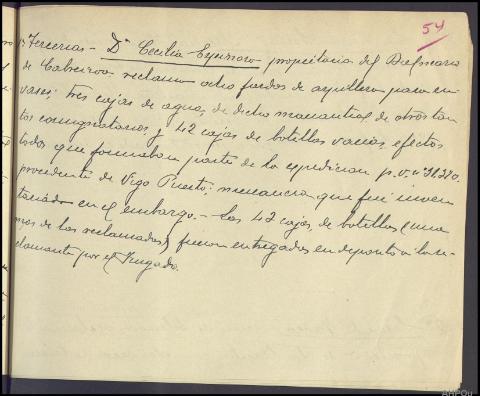 54
Tercerias - Dª Cecilia Espinoza propietaria del Balneario
de Cabreiroa reclama ocho fardos de aquillero para en-
vases; tres cajas de agua, de dicho manantial, de otros tan
tos consignatarios y 42 cajas de botellas vacias, efectos
todos que formaban parte de la expedicion p.v. nº 31.210.
procedente de Vigo Puerto; mercancia que fué inven
tariada en el embargo. - Las 42 cajas de botellas (una
de las reclamadas) fueron entregadas en deposito a la re-
clamante por el Juzgado.
AHPOu